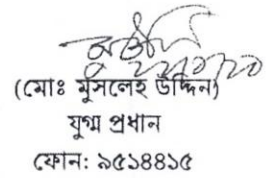 (মোঃ মুসলেহ উদ্দিন)
যুগ্ম প্রধান
ফোন: ৯৫১৪৪১৫